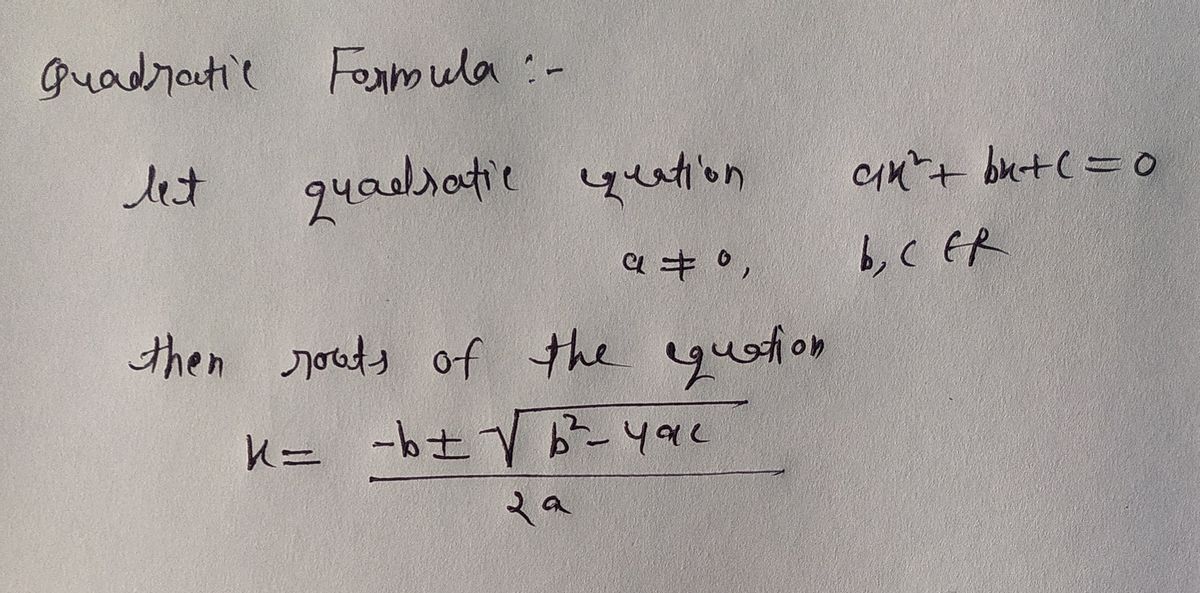 Quadratic Formula :-
let quadratic equation ax² + bx + c = 0
a ≠ 0, b, c ∈ R
then roots of the equation
x = -b ± √ b² - 4ac
2a